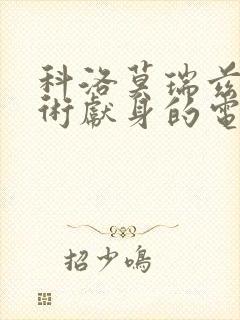 科洛莫瑞兹
術獻身的電
招少鳴